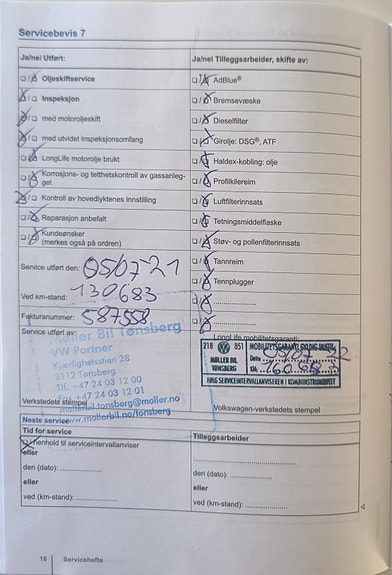 Servicebevis 7
Ja/nei Utført:
Ja/nei Tilleggsarbeider, skifte av:
Oljeskiftservice
AdBlue®
Inspeksjon
Bremsevæske
med motoroljeskift
Dieselfilter
med utvidet inspeksjonsomfang
Girolje: DSG®, ATF
LongLife motorolje brukt
Haldex-kobling: olje
Korrosjons- og tetthetskontroll av gassanleg-
get
Profilkilereim
Kontroll av hovedlyktenes innstilling
Luftfilterinnsats
Reparasjon anbefalt
Tetningsmiddelflaske
Kundeønsker
(merkes også på ordren)
Støv- og pollenfilterinnsats
Tannreim
Service utført den: 05/07-21
Tennplugger
Ved km-stand: 130683
Fakturanummer: 587558
Service utført av:
LongLife mobilitetsgaranti:
Møller Bil Tønsberg
VW Partner
Kjærlighetsstien 28
3172 Tønsberg
Tlf. +47 24 03 12 00
Fax +47 24 03 12 01
mollerbil.tonsberg@moller.no
www.mollerbil.no/tonsberg
218 851 MOBILITETSGARANTI GYLDIG INNTIL:
MØLLER BIL
TØNSBERG
Dato 05/07 22
KM. 160683
ERIG SERVICEINTERVALLANVISEREN I KOMBIINSTRUMENTET
Verkstedets stempel
Volkswagen-verkstedets stempel
Neste service
Tid for service
Tilleggsarbeider
I henhold til serviceintervallanviser
eller
den (dato):
den (dato):
eller
eller
ved (km-stand):
ved (km-stand):
18 Servicehefte